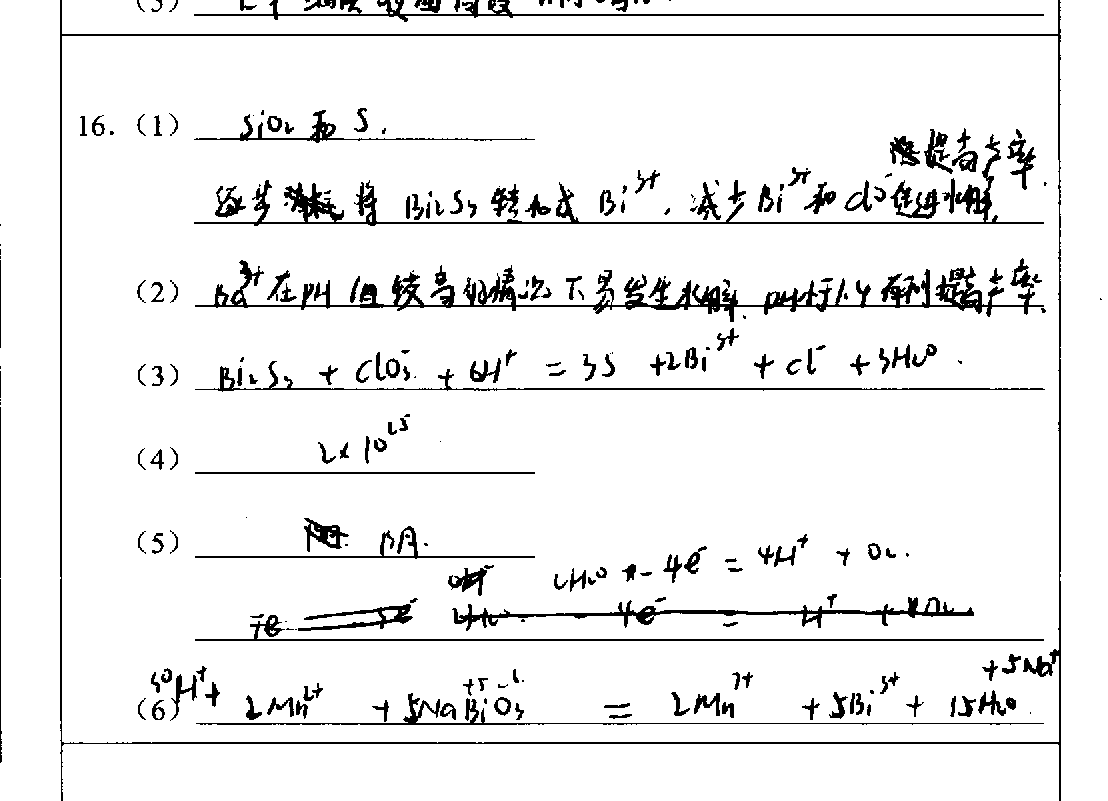 (5)
16. (1) SiO₂ 和 S.
提高产率.
逐步 将 Bi₂S₃ 转化成 Bi³⁺, 减少 Bi³⁺ 和 ClO⁻ 促进水解,
(2) Ba³⁺ 在 pH 值较高的情况下易发生水解. pH 1.4 有利提高产率.
(3) Bi₂S₃ + ClO₃⁻ + 6H⁺ = 3S + 2Bi³⁺ + Cl⁻ + 3H₂O.
(4) 2×10²⁵
(5) 阴.
2H₂O - 4e⁻ = 4H⁺ + O₂.
30H⁺ + +5Na⁺
(6) 2Mn²⁺ + 5NaBiO₃ = 2Mn⁷⁺ + 5Bi³⁺ + 15H₂O